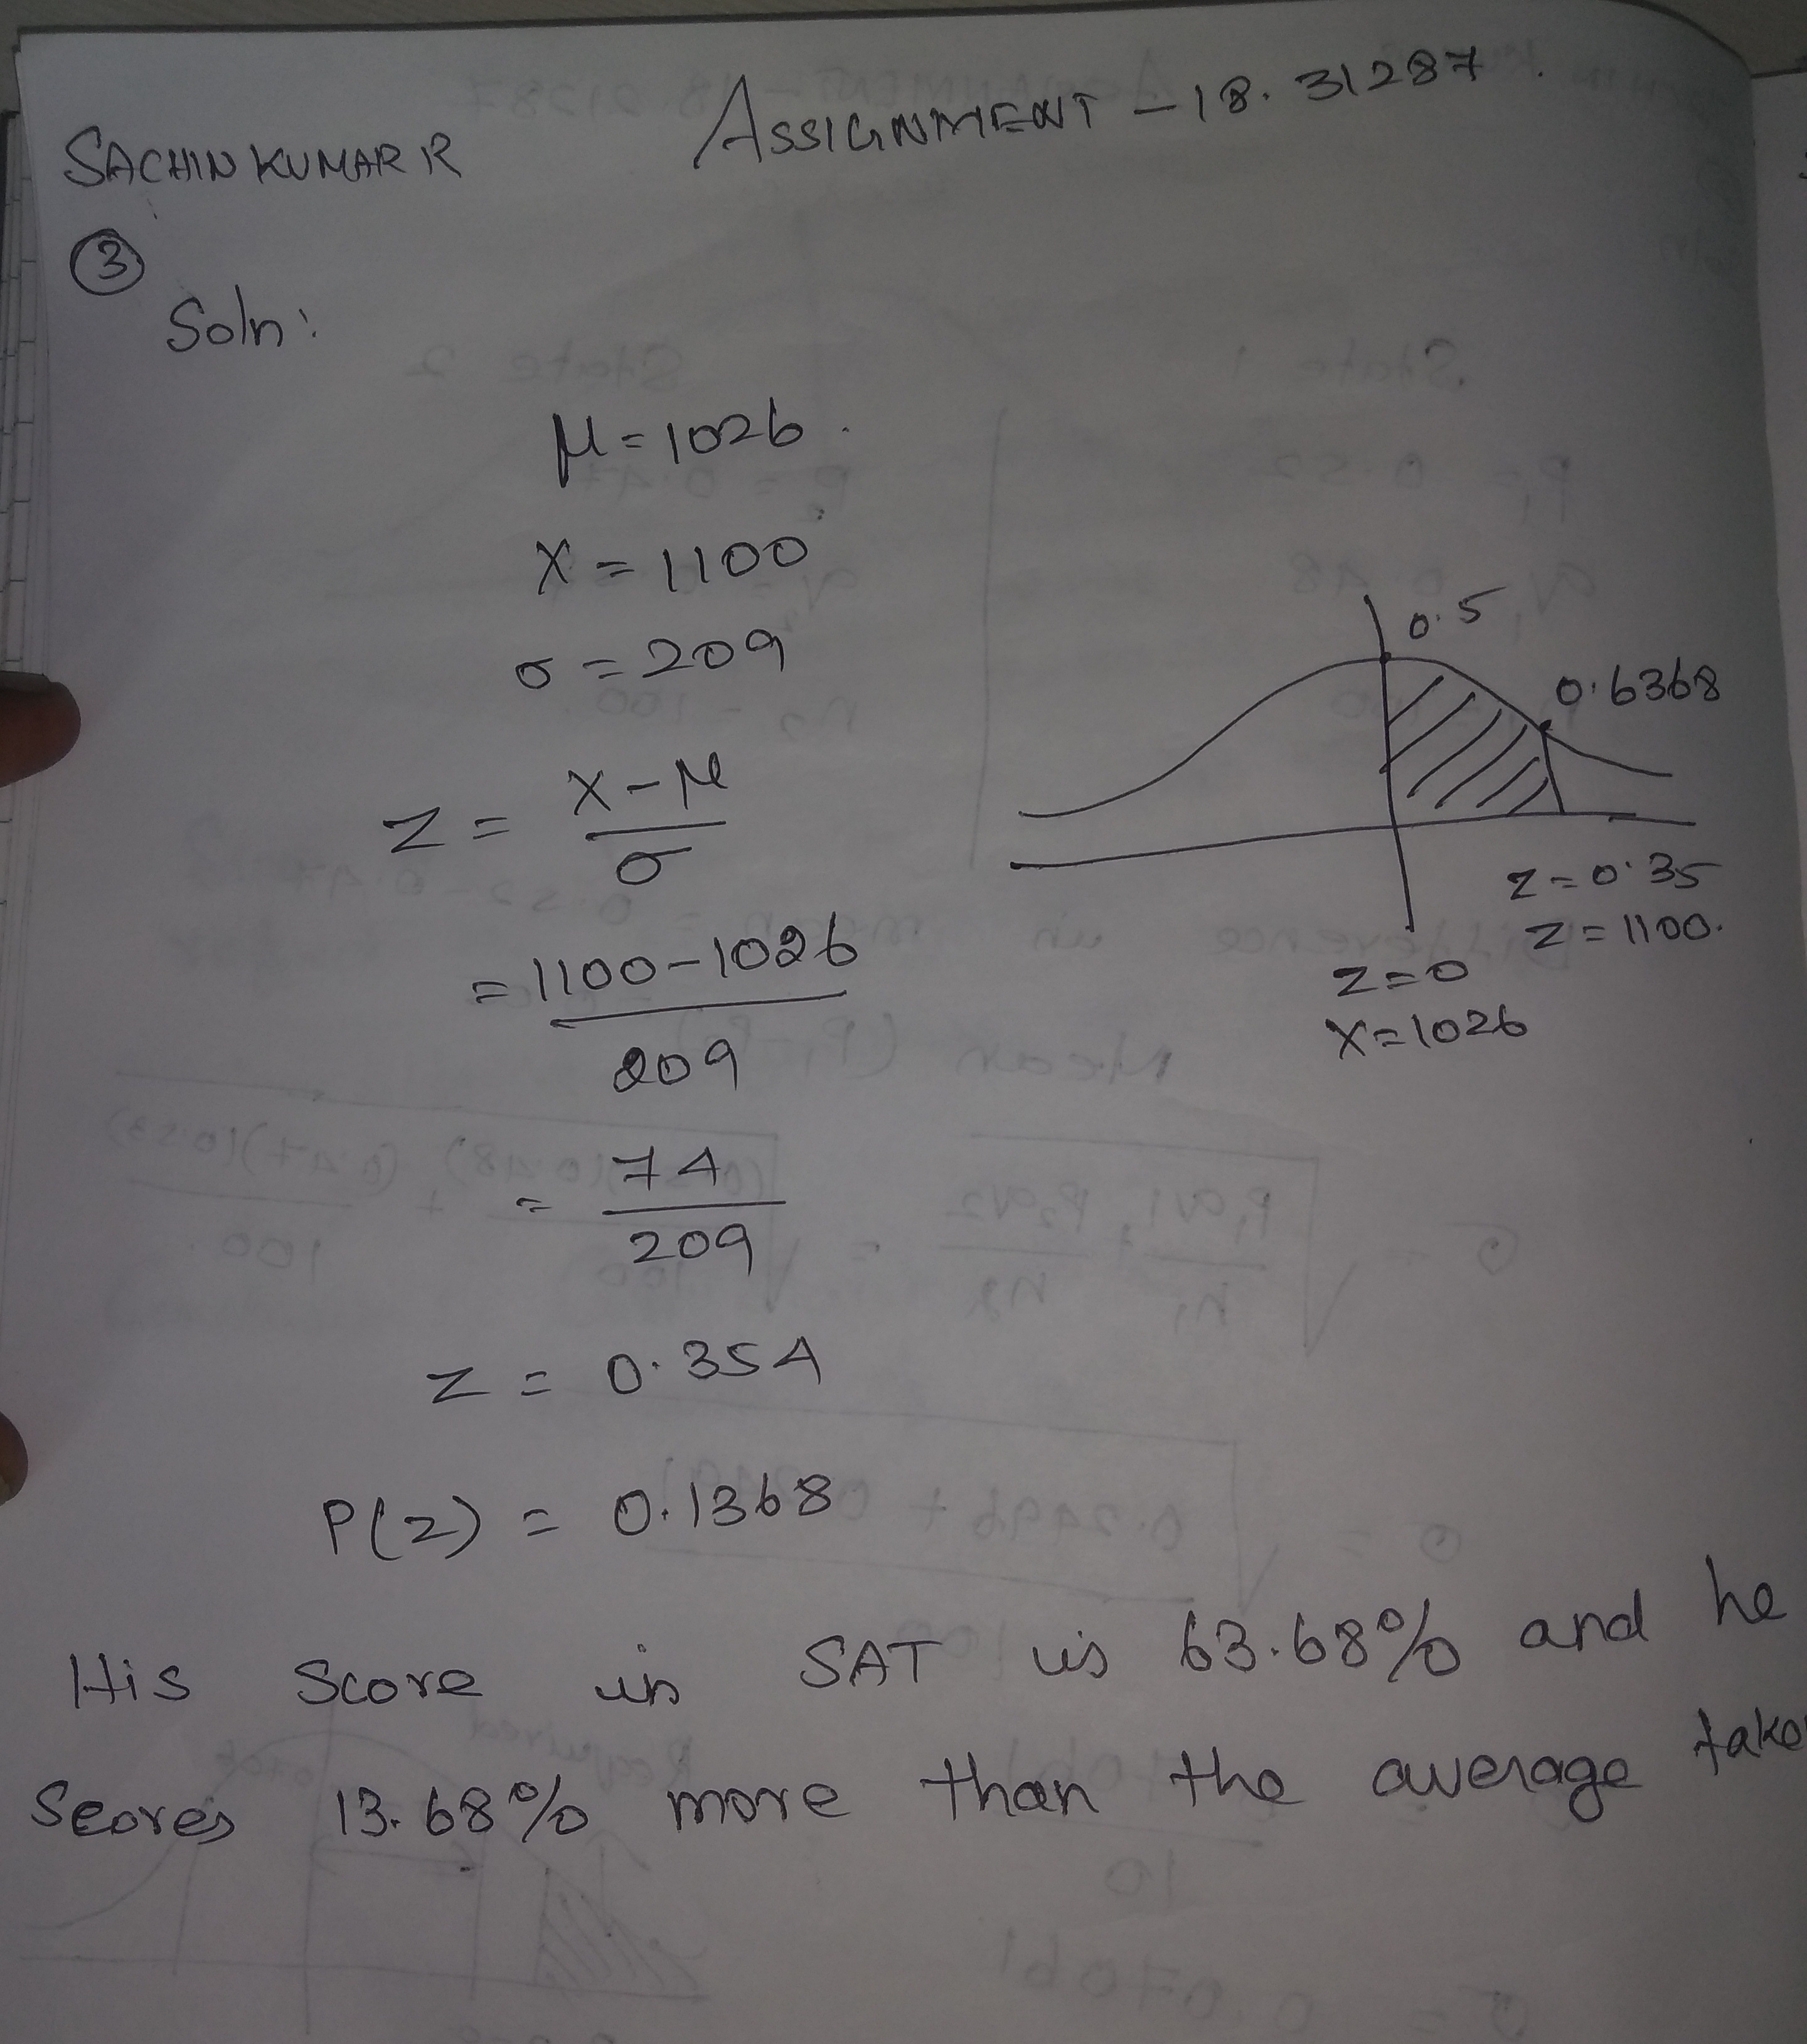 SACHIN KUMAR R ASSIGNMENT - 18.31287
③
Soln:
μ = 1026.
X = 1100
σ = 209
Z = X - μ / σ
= 1100 - 1026 / 209
= 74 / 209
Z = 0.354
P(Z) = 0.13680
0.5
0.6368
Z = 0.35
Z = 1100.
Z = 0
X = 1026
His Score in SAT is 63.68% and he
Scores 13.68% more than the average